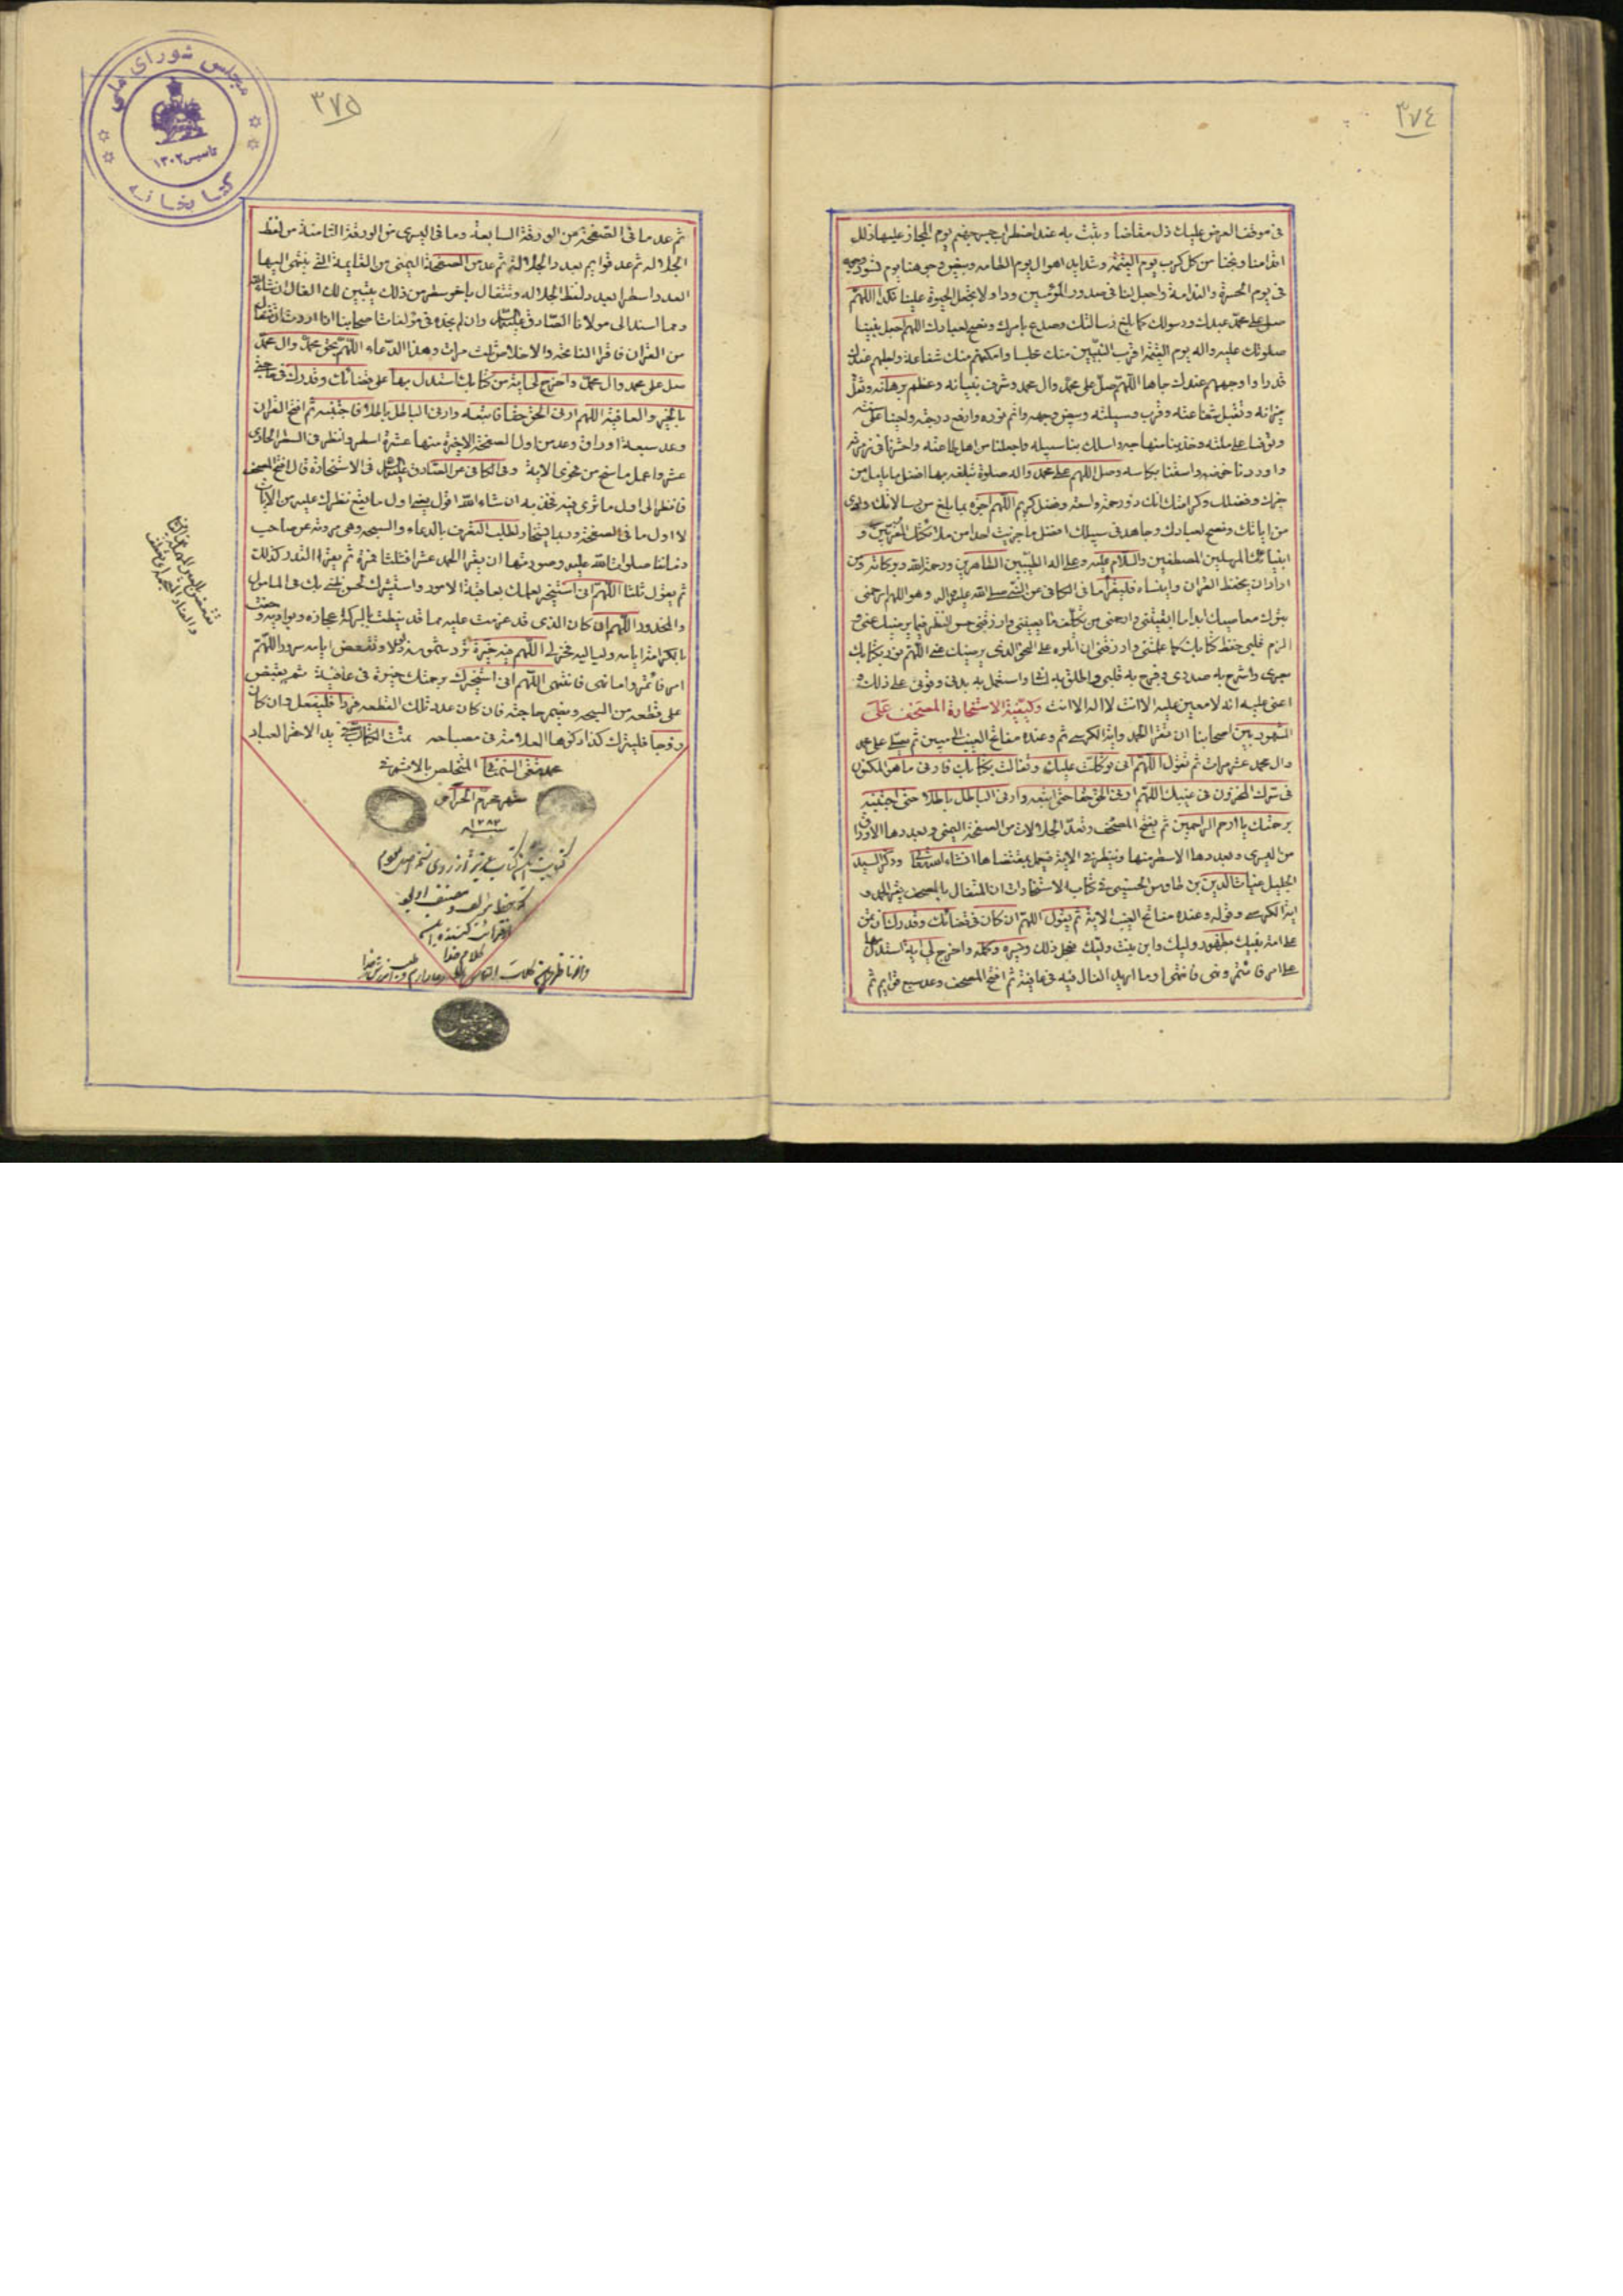 ٣٧٤
فى موقف العرض عليك ذل مقامنا وثبت به عند اضطراب جسر جهنم يوم المجاز عليها زلل
اقدامنا ونجنا من كل كرب يوم القيمة وشدايد اهوال يوم الطامه وبيض وجوهنا يوم تسود وجوه
فى يوم الحسرة والندامة واجعل لنا فى صدور المؤمنين ودا ولا تجعل الحيوة علينا نكدا اللهم
صل على محمد عبدك ورسولك كما بلغ رسالتك وصدع بامرك ونصح لعبادك اللهم اجعل نبينا
صلوتك عليه واله يوم القيمة اقرب النبيين منك مجلسا وامكنهم منك شفاعة واجلهم عندك
قدرا واوجههم عندك جاها اللهم صل على محمد وال محمد وشرف بنيانه وعظم برهانه وثقل
ميزانه وتقبل شفاعته وقرب وسيلته وبيض وجهه واتم نوره وارفع درجته واحينا على سنته
وتوفنا على ملته وخذ بنا منهاجه واسلك بنا سبيله واجعلنا من اهل طاعته واحشرنا فى زمرته
واوردنا حوضه واسقنا بكاسه وصل اللهم على محمد واله صلوة تبلغه بها افضل ما يامل من
خيرك وفضلك وكرامتك انك ذو رحمة واسعة وفضل كريم اللهم اجزه بما بلغ من رسالاتك وادى
من اياتك ونصح لعبادك وجاهد فى سبيلك افضل ما جزيت احدا من ملائكتك المقربين و
انبيائك المرسلين المصطفين والسلام عليه وعلى اله الطيبين الطاهرين ورحمة الله وبركاته ومن
اراد ان يحفظ القران ولا ينساه فليقرأ ما فى الكافى عن النبى صلى الله عليه واله وهو اللهم ارحمنى
بترك معاصيك ابدا ما ابقيتنى وارحمنى من تكلف ما يعنينى وارزقنى حسن النظر فيما يرضيك عنى و
الزم قلبى حفظ كتابك كما علمتنى وارزقنى ان اتلوه على النحو الذى يرضيك عنى اللهم نور بكتابك
بصرى واشرح به صدرى وفرح به قلبى واطلق به لسانى واستعمل به بدنى وقونى على ذلك و
اعنى عليه انه لا معين عليه الا انت لا اله الا انت وكيفية الاستخارة المصحف على
المشهور بين اصحابنا ان تقرء الحمد واية الكرسى ثم وعنده مفاتح الغيب الى مبين ثم يصلى على محمد
وال محمد عشر مرات ثم تقول اللهم انى توكلت عليك وتفالت بكتابك فارنى ما هو المكنون
فى سرك المخزون فى غيبك اللهم ارنى الحق حقا حتى اتبعه وارنى الباطل باطلا حتى اجتنبه
برحمتك يا ارحم الراحمين ثم يفتح المصحف وتعد الجلالات من الصفحة اليمنى وبعددها الاوراق
من اليسرى وبعددها الاسطر منها وينظر فى الاية فيعمل بمقتضاها انشاء الله تعالى وذكر السيد
الجليل غياث الدين بن طاوس الحسينى فى كتاب الاستخارات ان المتفال بالمصحف يقرء الحمد و
اية الكرسى وقوله وعنده مفاتح الغيب الاية ثم يقول اللهم ان كان فى قضائك وقدرك ان تمن
على امة نبيك بظهور وليك وابن بنت وليك فعجل ذلك ويسره وكمله واخرج لى اية استدل بها
على امر فائتمر ونهى فانتهى او ما اريد الفال فيه فى عافية ثم افتح المصحف وعد سبع قوايم ثم
٣٧٥
مجلس شوراى ملى
تاسيس ١٣٠٢
كتابخانه
ثم عد ما فى الصفحة من الورقة السابعة وما فى اليسرى من الورقة الثامنة من لفظ
الجلاله ثم عد قوايم بعدد الجلالة ثم عد من الصفحة اليمنى من القايمة التى ينتهى اليها
العدد اسطرا بعدد لفظ الجلاله وتتفال باخر سطر من ذلك يتبين لك الفال انشاء الله
ومما اسند الى مولانا الصادق عليه السلام وان لم نجده فى مؤلفات اصحابنا اذا اردت ان تتفال
من القران فاقرا الفاتحة والاخلاص ثلث مرات وهذا الدعاء اللهم بحق محمد وال محمد
صل على محمد وال محمد واخرج لى اية من كتابك استدل بها على قضائك وقدرك فى حاجتى
بالخير والعافية اللهم ارنى الحق حقا فاتبعه وارنى الباطل باطلا فاجتنبه ثم افتح القران
وعد سبعة اوراق وعد من اول الصفحة الاخيرة منها عشرة اسطر وانظر فى السطر الحادى
عشر واعمل ما سنح من فحوى الاية وفى الكافى عن الصادق عليه السلام فى الاستخارة قال افتح المصحف
فانظر الى اول ما ترى فيه فخذ به ان شاء الله اقول يعنى اول ما يقع نظرك عليه من الايات
لا اول ما فى الصفحة وربما يستخار لطلب التعرف بالدعاء والسبحه وهى مروية عن صاحب
زماننا صلوات الله عليه وصورتها ان يقرء الحمد عشرا فثلثا فمرة ثم يقرء القدر كذلك
ثم يقول ثلثا اللهم انى استخيرك لعلمك بعاقبة الامور واستشيرك لحسن ظنى بك فى المامول
والمحذور اللهم ان كان الذى قد عزمت عليه مما قد نيطت بالبركة اعجازه وبواديه وحفت
بالكرامة ايامه ولياليه فخر لى اللهم فيه خيرة ترد شموسه ذلولا وتقعض ايامه سرورا اللهم
امر فائتمر واما نهى فانتهى اللهم انى استخيرك برحمتك خيرة فى عافية ثم يقبض
على قطعه من السبحه ويضمر حاجته فان كان عدد تلك القطعه فردا فليفعل وان كان
زوجا فليترك كذا ذكرها العلامة فى مصباحه تمت الكتاب بيد الاحقر العباد
المتخلص بالا
شهر محرم الحرام
١٢٨٢